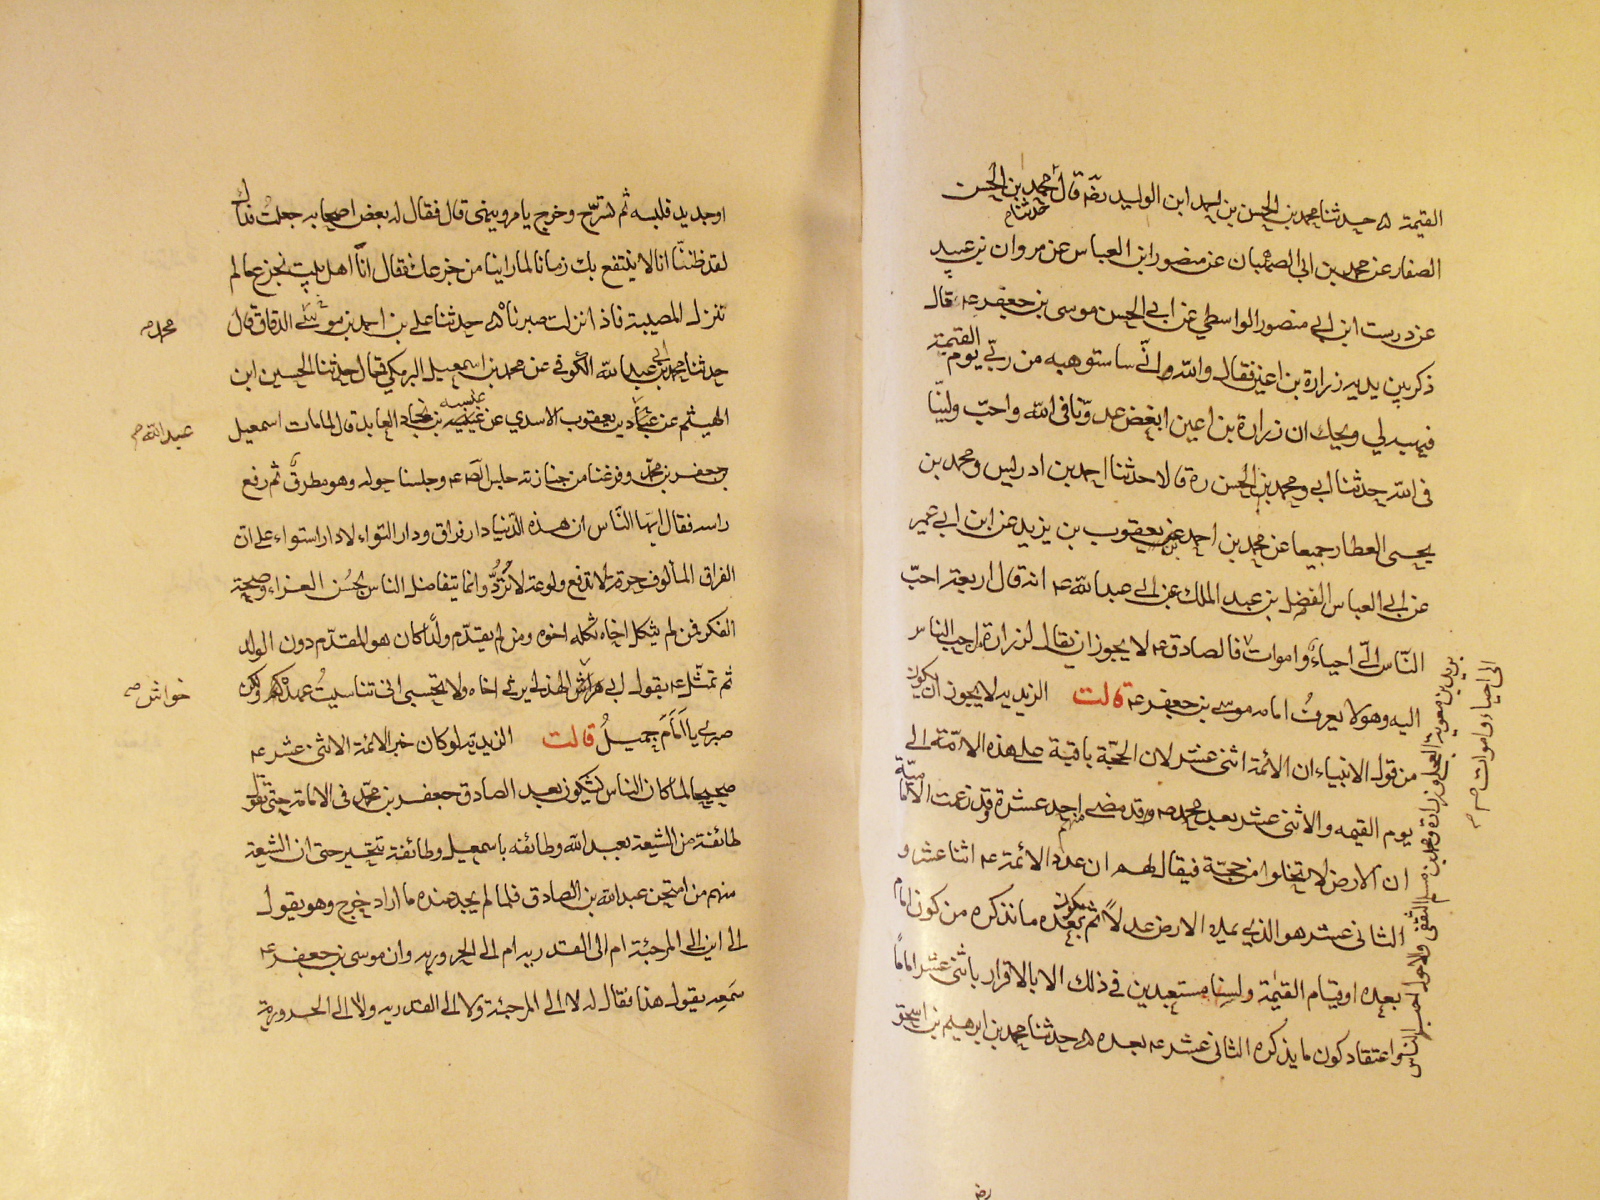 القيمة ۵ حدثنا محمد بن الحسن بن احمد ابن الوليد رضه قال محمد بن الحسن
حدثنا
الصفار عن محمد بن ابى الصهبان عن منصور ابن العباس عن مروان بن عبيد
عن درست ابن ابي منصور الواسطي عن ابي الحسن موسى بن جعفر ع قال
ذكر بين يديه زرارة بن اعين فقال والله انّي ساستوهبه من ربّي يوم القيمة
فيهبه لي ويحك ان زرارة بن اعين ابغض عدوّنا فى الله واحبّ وليّنا
فى الله حدثنا ابي ومحمد بن الحسن ره قالا حدثنا احمد بن ادريس ومحمد بن
يحيى العطار جميعا عن محمد بن احمد عن يعقوب بن يزيد عن ابن ابي عمير
عن ابي العباس الفضل بن عبد الملك عن ابي عبد الله ع انه قال اربعة احبّ
النّاس الىّ احياءً وامواتا فالصادق ع لا يجوز ان يقال لزرارة احب الناس
اليه وهو لا يعرف امامه موسى بن جعفر ع قالت الزيديه لا يجوز ان يكون
من قول الانبياء ان الأئمة اثنى عشر لان الحجّة باقية على هذه الامّة الى
يوم القيمه والاثنى عشر بعد محمد ص وقد مضى منهم احد عشرة وقد زعمت الامامية
ان الارض لا تخلوا من حجّة فيقال لهم ان عدد الائمة ع اثنا عشر و
الثانى عشر هو الذي يملاء الارض عدلاً ثم يكون بعده ما نذكره من كون امام
بعده او قيام القيمة ولسنا مستعبدين في ذلك الا بالاقرار باثنى عشر اماماً
واعتقاد كون ما يذكره الثانى عشر ع بعده ۵ حدثنا محمد بن ابرهيم بن اسحق
بريد بن معوية العجلي وزرارة ومحمد بن مسلم الثقفى والاحول احب الناس
الى احياء واموات صح
اوجد يد قلبه ثم تسرّح وخرج يامر وينهى قال فقال له بعض اصحابه جعلت فداك
لقد ظننّا انا لا ينتفع بك زمانا لما راينا من جزعك فقال انّا اهل بيت نجزع ما لم
تنزل المصيبة فاذا نزلت صبرنا ۵ حدثنا على بن احمد بن موسى الدقاق قال
محمد صح
حدثنا محمد بن ابي عبد الله الكوفي عن محمد بن اسمعيل البرمكي قال حدثنا الحسين ابن
الهيثم عن عبّاد بن يعقوب الاسدي عن عنبسه بن بجاد العابد قال لما مات اسمعيل
عبد الله صح
بن جعفر بن محمّد وفرغنا من جنازته جلس الص ع وجلسنا حوله وهو مطرق ثم رفع
راسه فقال ايها النّاس ان هذه الدّنيا دار فراق ودار التواء لا دار استواء على ان
الفراق المألوف حرقة لا تدفع ولوعة لا تُردُّ وانما يتفاضل الناس بحُسن العزاء وصحة
الفكر فمن لم يثكل اخاه ثكله اخوه ومن لم يقدّم ولدًا كان هو المقدّم دون الولد
ثم تمثّل ع بقول ابى خراش الهذلي يرثى اخاه ولا تحسبي انى تناسيتُ عهدكم ولكن
خراش صح
صبرى يا اُمَامَ جميلُ قالت الزيديه لو كان خبر الائمة الاثنى عشر ع
صحيحا لما كان الناس يشكون بعد الصادق جعفر بن محمّد فى الامامة حتى تقول
طائفة من الشيعة بعبد الله وطائفه باسمعيل وطائفة تتحير حتى ان الشيعة
منهم من امتحن عبد الله بن الصادق فلما لم يجد عنده ما اراد خرج وهو يقول
الى اين الى المرجئة ام الى القدريه ام الى الحروريه وان موسى بن جعفر ع
سَمِعه يقول هذا فقال له لا الى المرجئة ولا الى القدريه ولا الى الحروريه